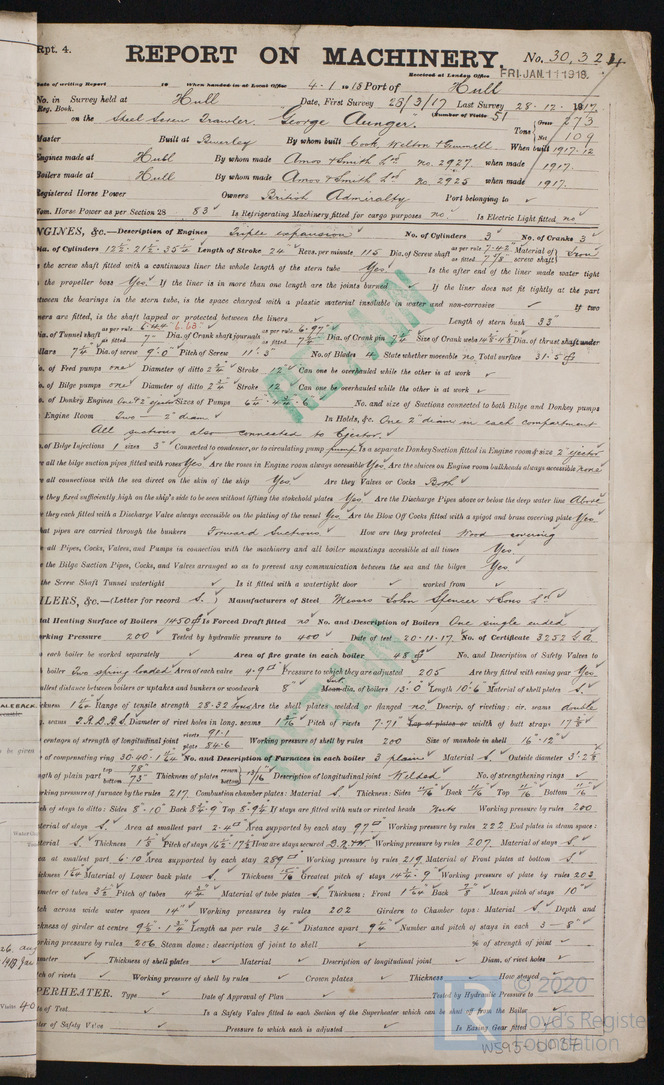 Rpt. 4.
REPORT ON MACHINERY. No. 30,324
Date of writing Report 19 When handed in at Local Office 4.1.1918 Port of Hull
Received at London Office FRI. JAN. 11 1918
No. in Survey held at Hull Date, First Survey 23/3/17 Last Survey 28.12.1917
Reg. Book. (Number of Visits 51
on the Steel Screw Trawler. George Aunger. Tons { Gross 273 Net 109
Master Built at Beverley By whom built Cook, Welton & Gemmell When built 1917-12
Engines made at Hull By whom made Amos & Smith Ld No. 2927 when made 1917.
Boilers made at Hull By whom made Amos & Smith Ld No. 2925 when made 1917.
Registered Horse Power Owners British Admiralty Port belonging to
Nom. Horse Power as per Section 28 83 Is Refrigerating Machinery fitted for cargo purposes no Is Electric Light fitted no
NGINES, &c.—Description of Engines Triple expansion No. of Cylinders 3 No. of Cranks 3
Dia. of Cylinders 12½-21½-35½ Length of Stroke 24" Revs. per minute 115 Dia. of Screw shaft as per rule 7.42 as fitted 7⅞ Material of screw shaft Iron
the screw shaft fitted with a continuous liner the whole length of the stern tube Yes Is the after end of the liner made water tight
the propeller boss Yes If the liner is in more than one length are the joints burned If the liner does not fit tightly at the part
between the bearings in the stern tube, is the space charged with a plastic material insoluble in water and non-corrosive If two
liners are fitted, is the shaft lapped or protected between the liners Length of stern bush 33"
Dia. of Tunnel shaft as per rule 6.44 6.63 as fitted 7" Dia. of Crank shaft journals as per rule 6.97 as fitted 7¼ Dia. of Crank pin 7¼ Size of Crank webs Dia. of thrust shaft under
collars 7¼ Dia. of screw 9'-0" Pitch of Screw 11'-3" No. of Blades 4 State whether moveable no Total surface 31.5
No. of Feed pumps one Diameter of ditto 2¾ Stroke 12" Can one be overhauled while the other is at work
No. of Bilge pumps one Diameter of ditto 2¾ Stroke 12 Can one be overhauled while the other is at work
of Donkey Engines One & 2" ejector Sizes of Pumps No. and size of Suctions connected to both Bilge and Donkey pumps
Engine Room Two - 2" diam In Holds, &c. One 2" diam in each compartment
All suctions also connected to Ejector.
of Bilge Injections 1 sizes 3" Connected to condenser, or to circulating pump pump Is a separate Donkey Suction fitted in Engine room & size 2" ejector
all the bilge suction pipes fitted with roses Yes Are the roses in Engine room always accessible Yes Are the sluices on Engine room bulkheads always accessible none
all connections with the sea direct on the skin of the ship Yes Are they Valves or Cocks Both
they fixed sufficiently high on the ship's side to be seen without lifting the stokehold plates Yes Are the Discharge Pipes above or below the deep water line Above
they each fitted with a Discharge Valve always accessible on the plating of the vessel Yes Are the Blow Off Cocks fitted with a spigot and brass covering plate Yes
pipes are carried through the bunkers Forward Suctions How are they protected Wood covering
all Pipes, Cocks, Valves, and Pumps in connection with the machinery and all boiler mountings accessible at all times Yes
the Bilge Suction Pipes, Cocks, and Valves arranged so as to prevent any communication between the sea and the bilges Yes
the Screw Shaft Tunnel watertight Is it fitted with a watertight door worked from
ILERS, &c.—(Letter for record S.) Manufacturers of Steel Messrs John Spencer & Sons Ld
Total Heating Surface of Boilers 1450 Is Forced Draft fitted no No. and Description of Boilers One single ended
Working Pressure 200 Tested by hydraulic pressure to 400 Date of test 20.11.17 No. of Certificate 3252
each boiler be worked separately Area of fire grate in each boiler 48 No. and Description of Safety Valves to
boiler Two spring loaded Area of each valve 4.9 Pressure to which they are adjusted 205 Are they fitted with easing gear Yes
smallest distance between boilers or uptakes and bunkers or woodwork 8" Mean dia. of boilers 13'-0" Length 10-6 Material of shell plates S.
Range of tensile strength 28-32 tons Are the shell plates welded or flanged no Descrip. of riveting: cir. seams double
seams Diameter of rivet holes in long. seams Pitch of rivets 7.71 Lap of plates or width of butt straps
percentages of strength of longitudinal joint rivets 91.1 plate 84.6 Working pressure of shell by rules 200 Size of manhole in shell 16"-12"
of compensating ring No. and Description of Furnaces in each boiler 3 plain Material S. Outside diameter
length of plain part top 78" bottom 73" Thickness of plates crown bottom 13/16 Description of longitudinal joint Welded No. of strengthening rings
working pressure of furnace by the rules 217. Combustion chamber plates: Material S. Thickness: Sides 11/16 Back 11/16 Top 11/16 Bottom 11/16
Pitch of stays to ditto: Sides 8"-10" Back Top If stays are fitted with nuts or riveted heads Nuts Working pressure by rules 200
Material of stays S. Area at smallest part 2.4 Area supported by each stay 97 Working pressure by rules 222 End plates in steam space:
Material S. Thickness 1⅛ Pitch of stays How are stays secured Working pressure by rules 207. Material of stays S.
Area at smallest part 6.10 Area supported by each stay 289 Working pressure by rules 219 Material of Front plates at bottom S.
Thickness Material of Lower back plate S. Thickness Greatest pitch of stays Working pressure of plate by rules 203
Diameter of tubes 3½ Pitch of tubes 4¾ Material of tube plates S. Thickness: Front Back ⅞ Mean pitch of stays 10"
Pitch across wide water spaces 14" Working pressures by rules 202 Girders to Chamber tops: Material S. Depth and
thickness of girder at centre Length as per rule 34" Distance apart 9¼ Number and pitch of stays in each 3 - 8"
working pressure by rules 206 Steam dome: description of joint to shell % of strength of joint
Diameter Thickness of shell plates Material Description of longitudinal joint Diam. of rivet holes
Pitch of rivets Working pressure of shell by rules Crown plates Thickness How stayed
PERHEATER. Type Date of Approval of Plan Tested by Hydraulic Pressure to
Date of Test Is a Safety Valve fitted to each Section of the Superheater which can be shut off from the Boiler
Diameter of Safety Valve Pressure to which each is adjusted Is Easing Gear fitted
RETAIN
RETAIN
© 2020
LR
Lloyd's Register
Foundation
WS95-0037